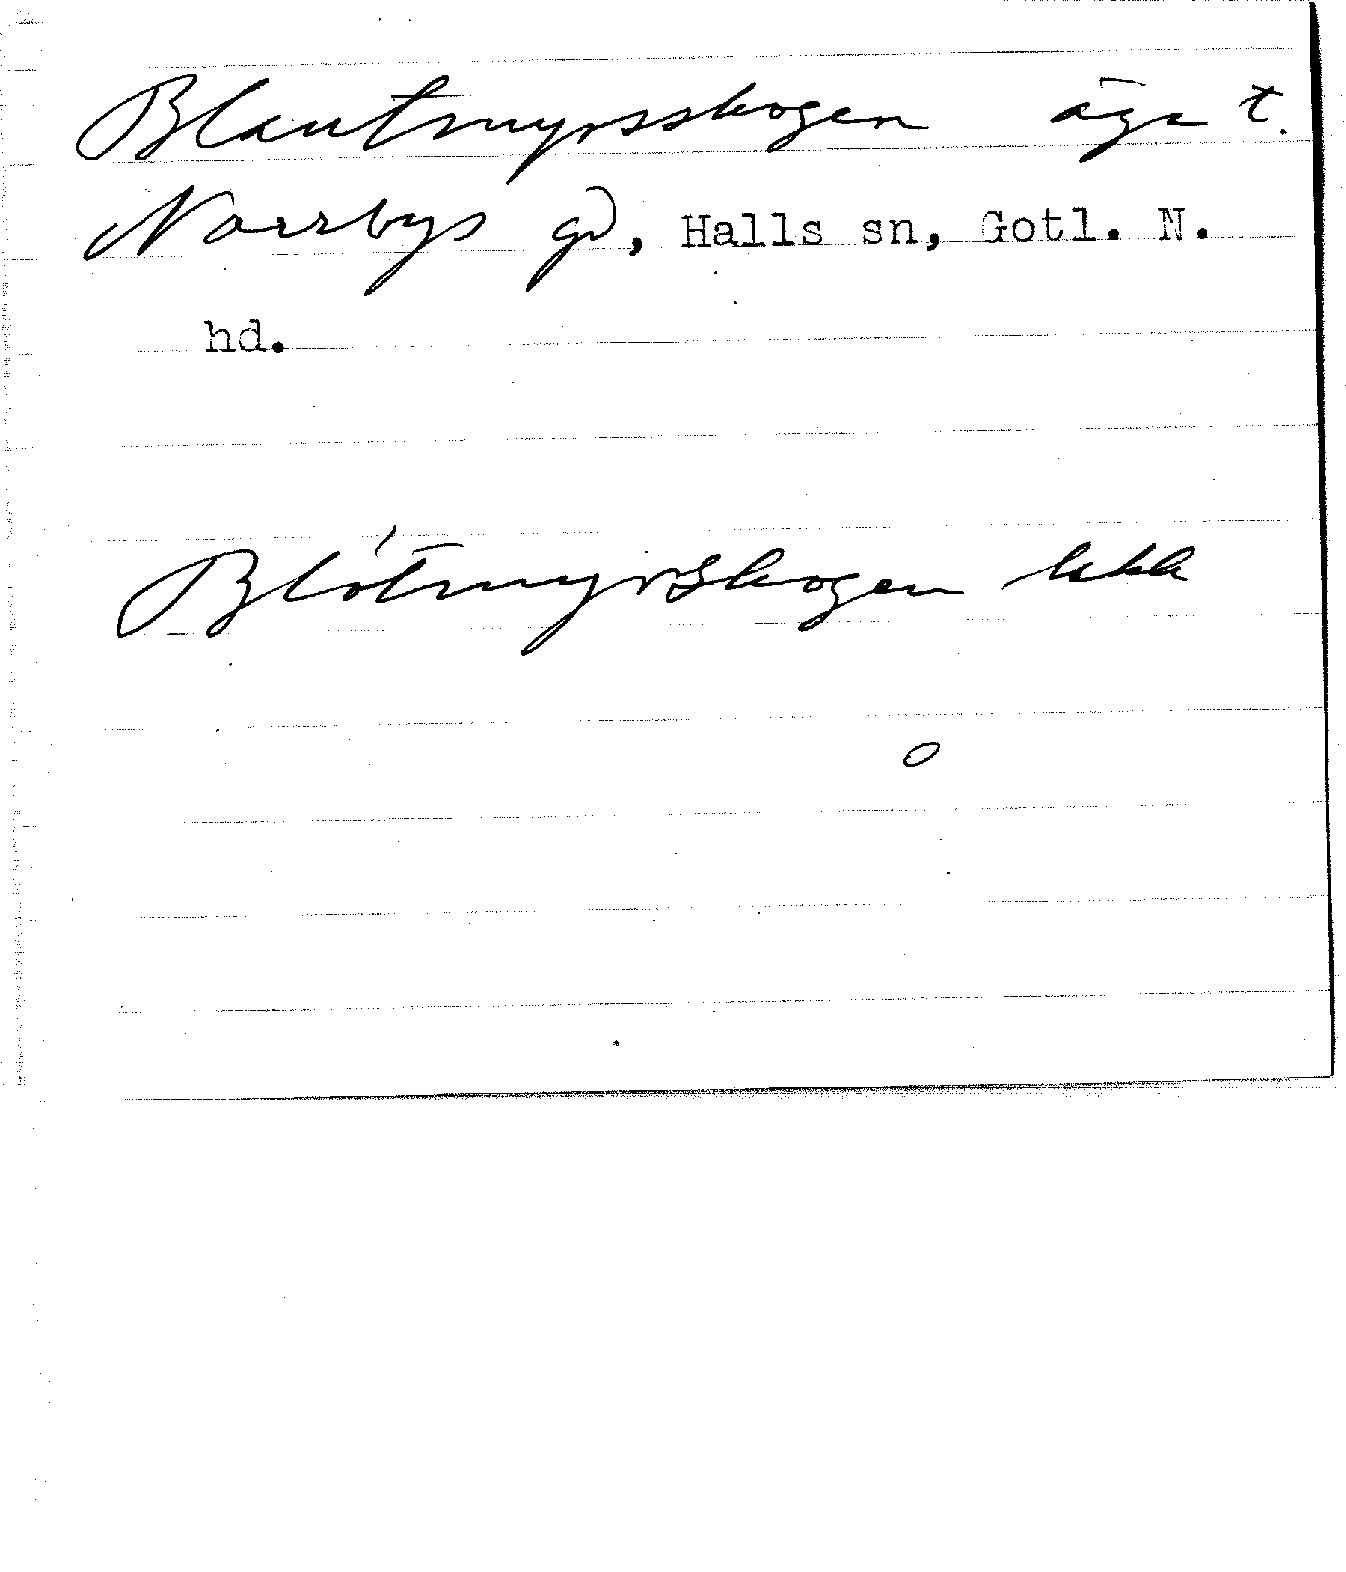 Blautmyrsskogen äga t.
Norrbys gd, Halls sn, Gotl. N.
hd.
Blótmyrskogen